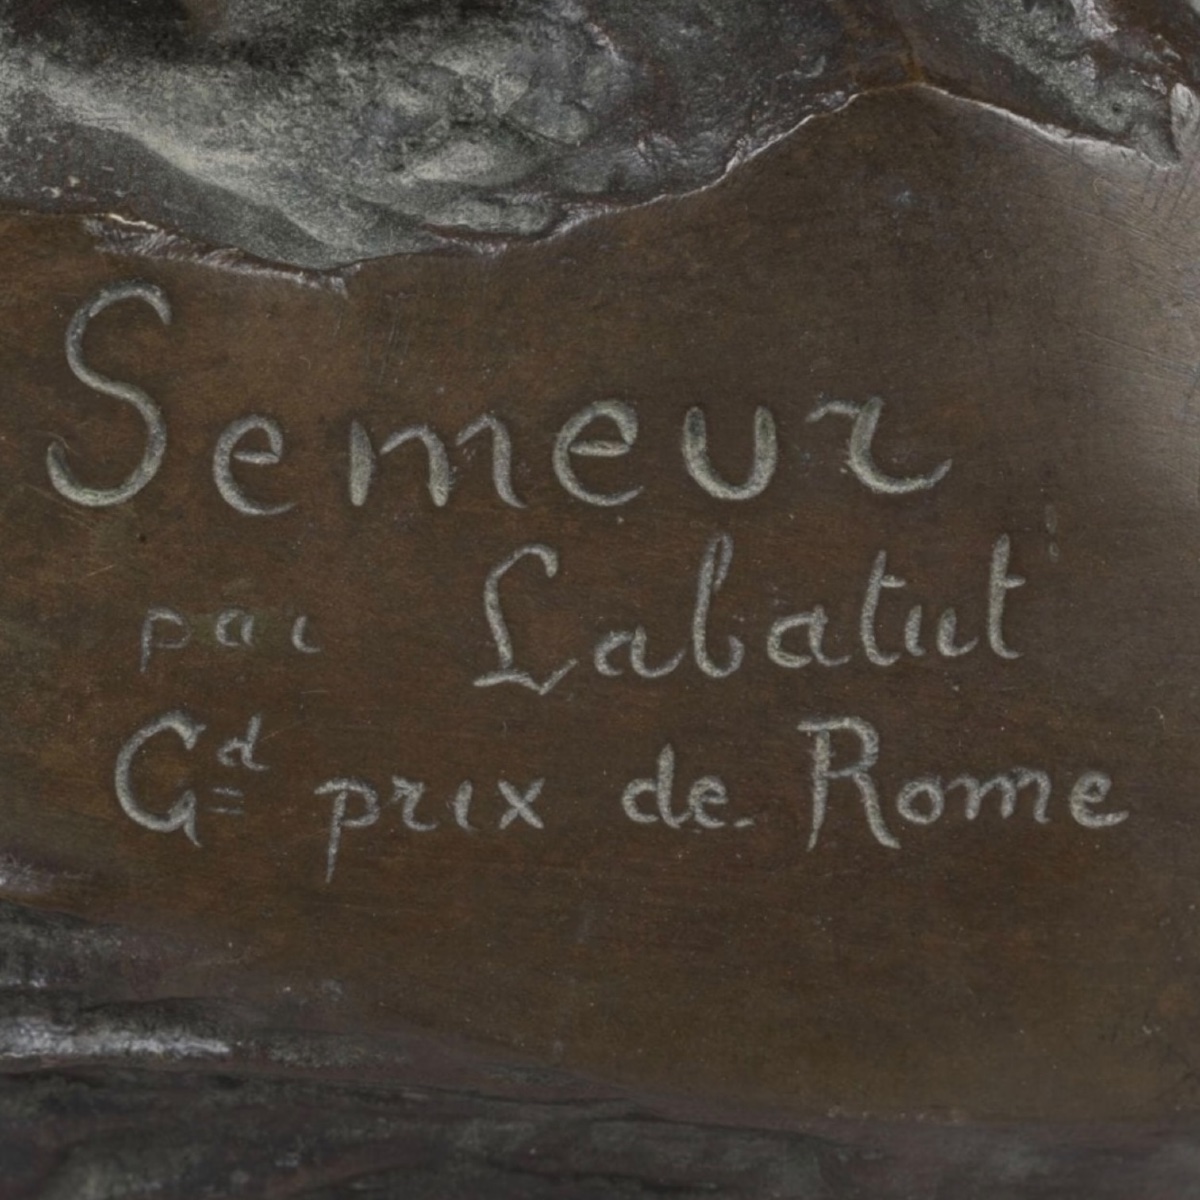 Semeur
par Labatut
Gd prix de Rome